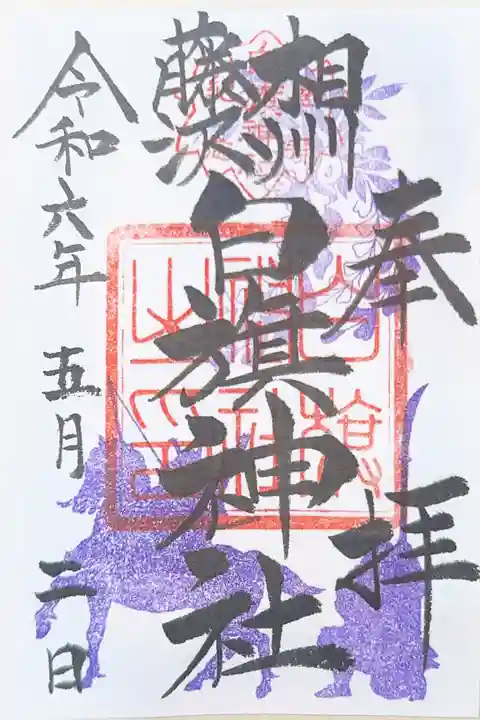 奉拝
相州
藤沢
白旗神社
令和六年 五月 二日